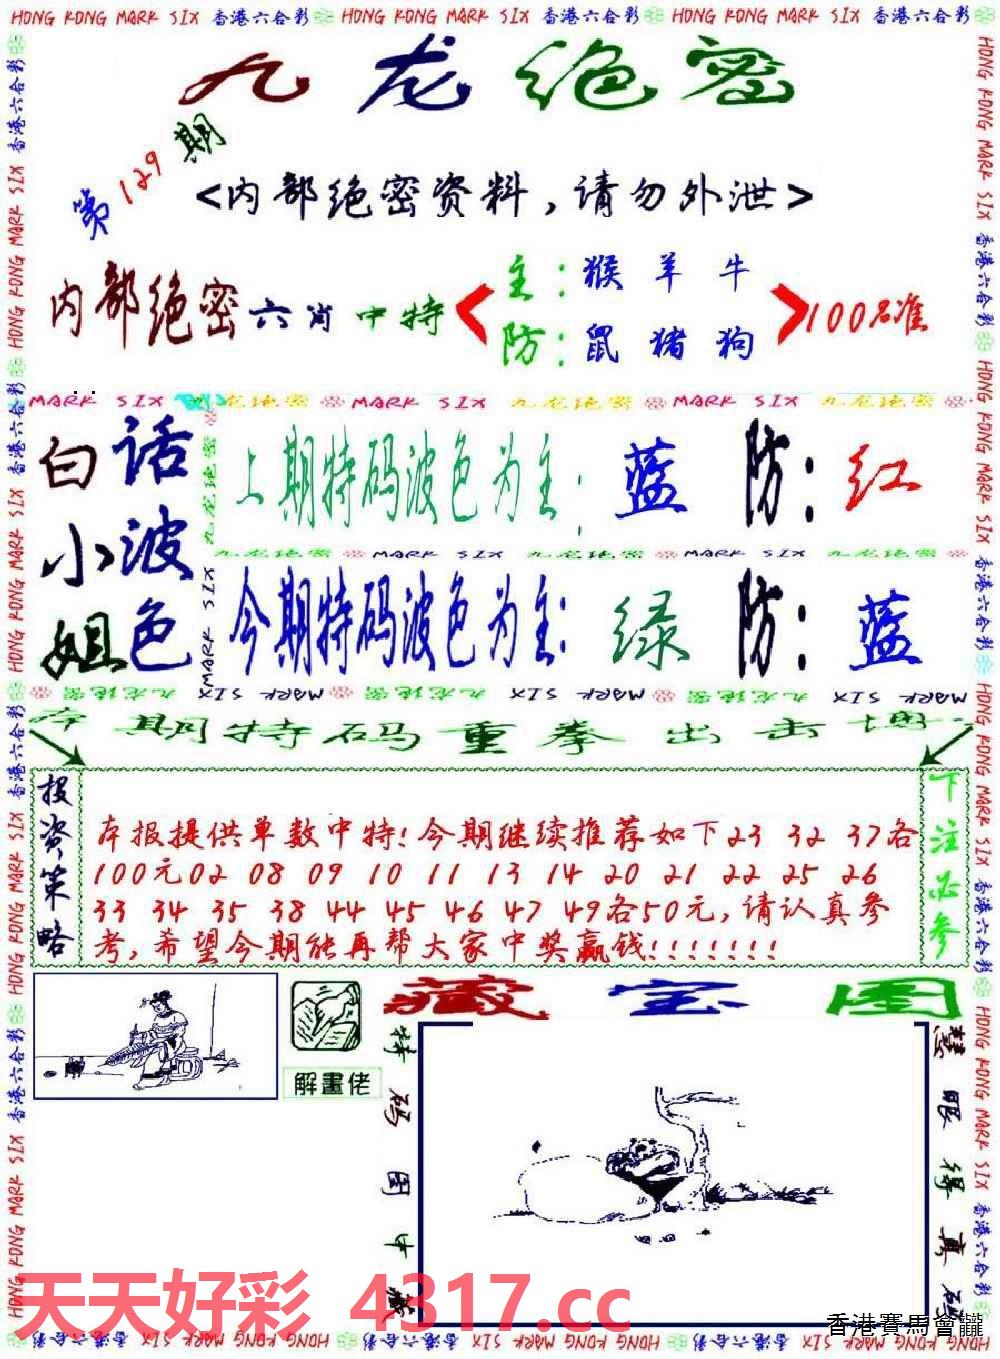 HONG KONG MARK SIX 香港六合彩 HONG KONG MARK SIX 香港六合彩 HONG KONG MARK SIX 香港六合彩
九龙绝密
第129期
<内部绝密资料,请勿外泄>
内部绝密六肖中特
主:猴羊牛
防:鼠猪狗
100%准
MARK SIX 九龙绝密 MARK SIX 九龙绝密 MARK SIX 九龙绝密
白小姐
话波色
上期特码波色为主:蓝 防:红
九龙绝密 MARK SIX 九龙绝密 MARK SIX 九龙绝密
今期特码波色为主:绿 防:蓝
本期特码重拳出击
投资策略
本报提供单数中特!今期继续推荐如下23 32 37各
100元02 08 09 10 11 13 14 20 21 22 25 26
33 34 35 38 44 45 46 47 49各50元,请认真参
考,希望今期能再帮大家中奖赢钱!!!!!!!
下注必参
解畫佬
藏宝图
特码图中藏
慧眼得真码
天天好彩 4317.cc
香港賽馬會